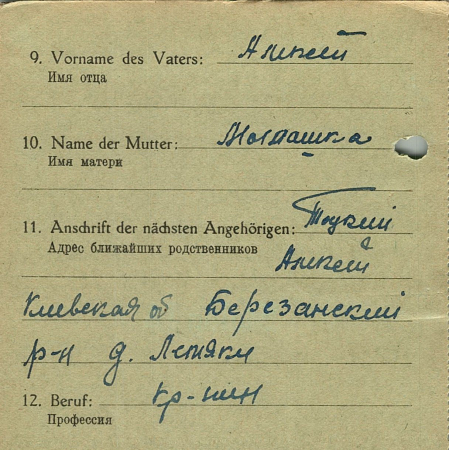 9. Vorname des Vaters: Алексей
Имя отца
10. Name der Mutter:
Имя матери
11. Anschrift der nächsten Angehörigen: Тоцкий
Адрес ближайших родственников Алексей
Киевская об Березанский
р-н д. Лехяки
12. Beruf: кр-нин
Профессия